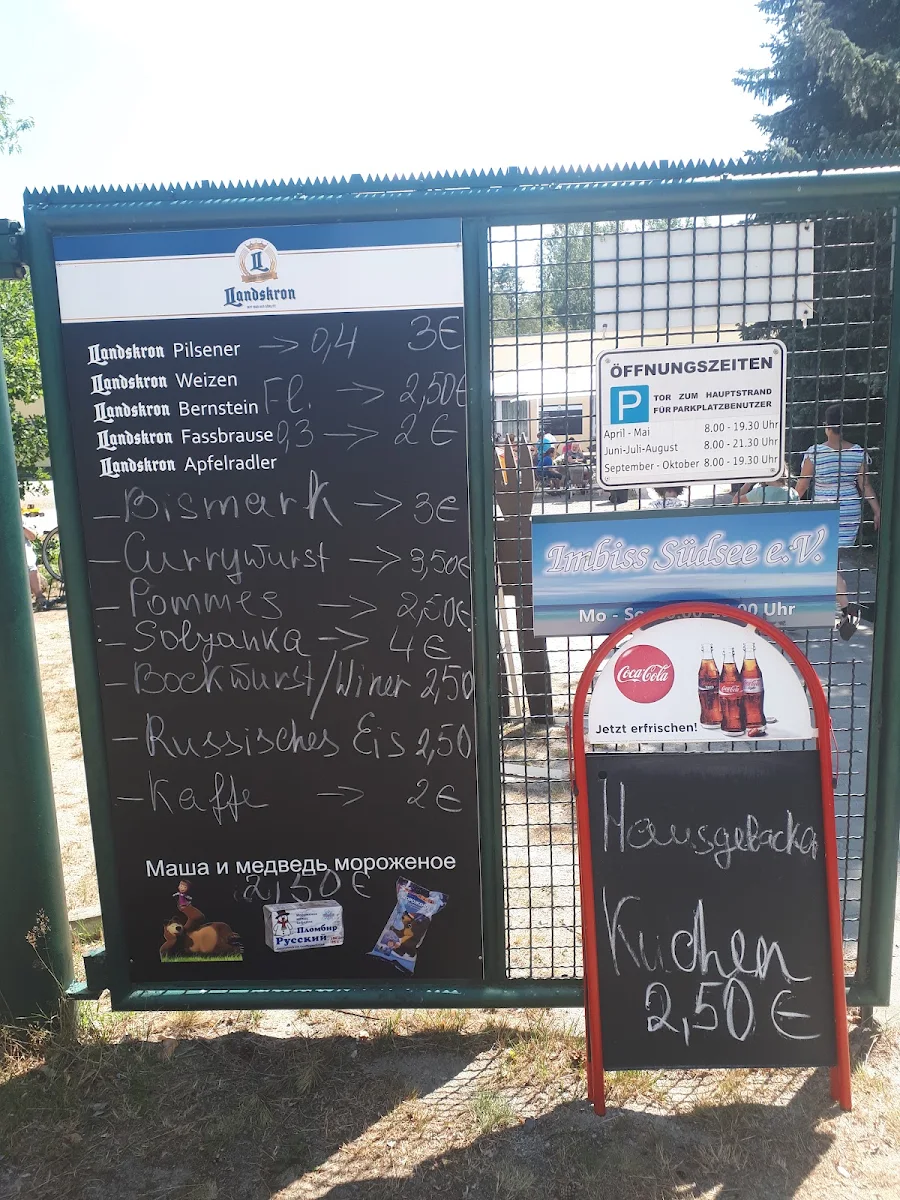 Landskron
Landskron Pilsener → 0,4 3€
Landskron Weizen
Landskron Bernstein Fl. → 2,50€
Landskron Fassbrause 0,3 → 2€
Landskron Apfelradler
- Bismark → 3€
- Currywurst → 3,50€
- Pommes → 2,50€
- Solyanka → 4€
- Bockwurst/Winer 2,50
- Russisches Eis 2,50
- Kaffe → 2€
Маша и медведь мороженое
2,50€
Пломбир
Русский
ÖFFNUNGSZEITEN
P TOR ZUM HAUPTSTRAND
FÜR PARKPLATZBENUTZER
April - Mai 8.00 - 19.30 Uhr
Juni-Juli-August 8.00 - 21.30 Uhr
September - Oktober 8.00 - 19.30 Uhr
Imbiss Südsee e.V.
Mo - Uhr
Coca-Cola
Jetzt erfrischen!
Hausgebacken
Kuchen
2,50 €